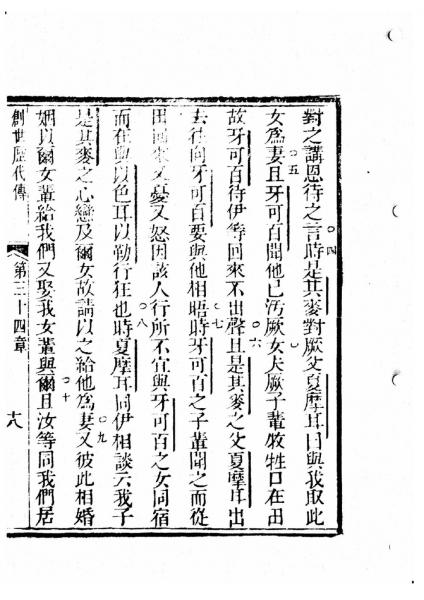 對之講恩待之言四時是其麥對厥父夏摩耳曰與我取此
女爲妻五且牙可百聞他已污厥女夫厥子輩牧牲口在田
故牙可百待伊等回來不出聲六且是其麥之父夏摩耳出
去往向牙可百要與他相晤七時牙可百之子輩聞之而從
田回來又憂又怒因該人行所不宜與牙可百之女同宿
而在以色耳以勒行狂也八時夏摩耳同伊相談云我子
是其麥之心戀及爾女故請以之給他爲妻九又彼此相婚
姻以爾女輩給我們又娶我女輩與爾十且汝等同我們居
創世歷代傳 第三十四章 十八